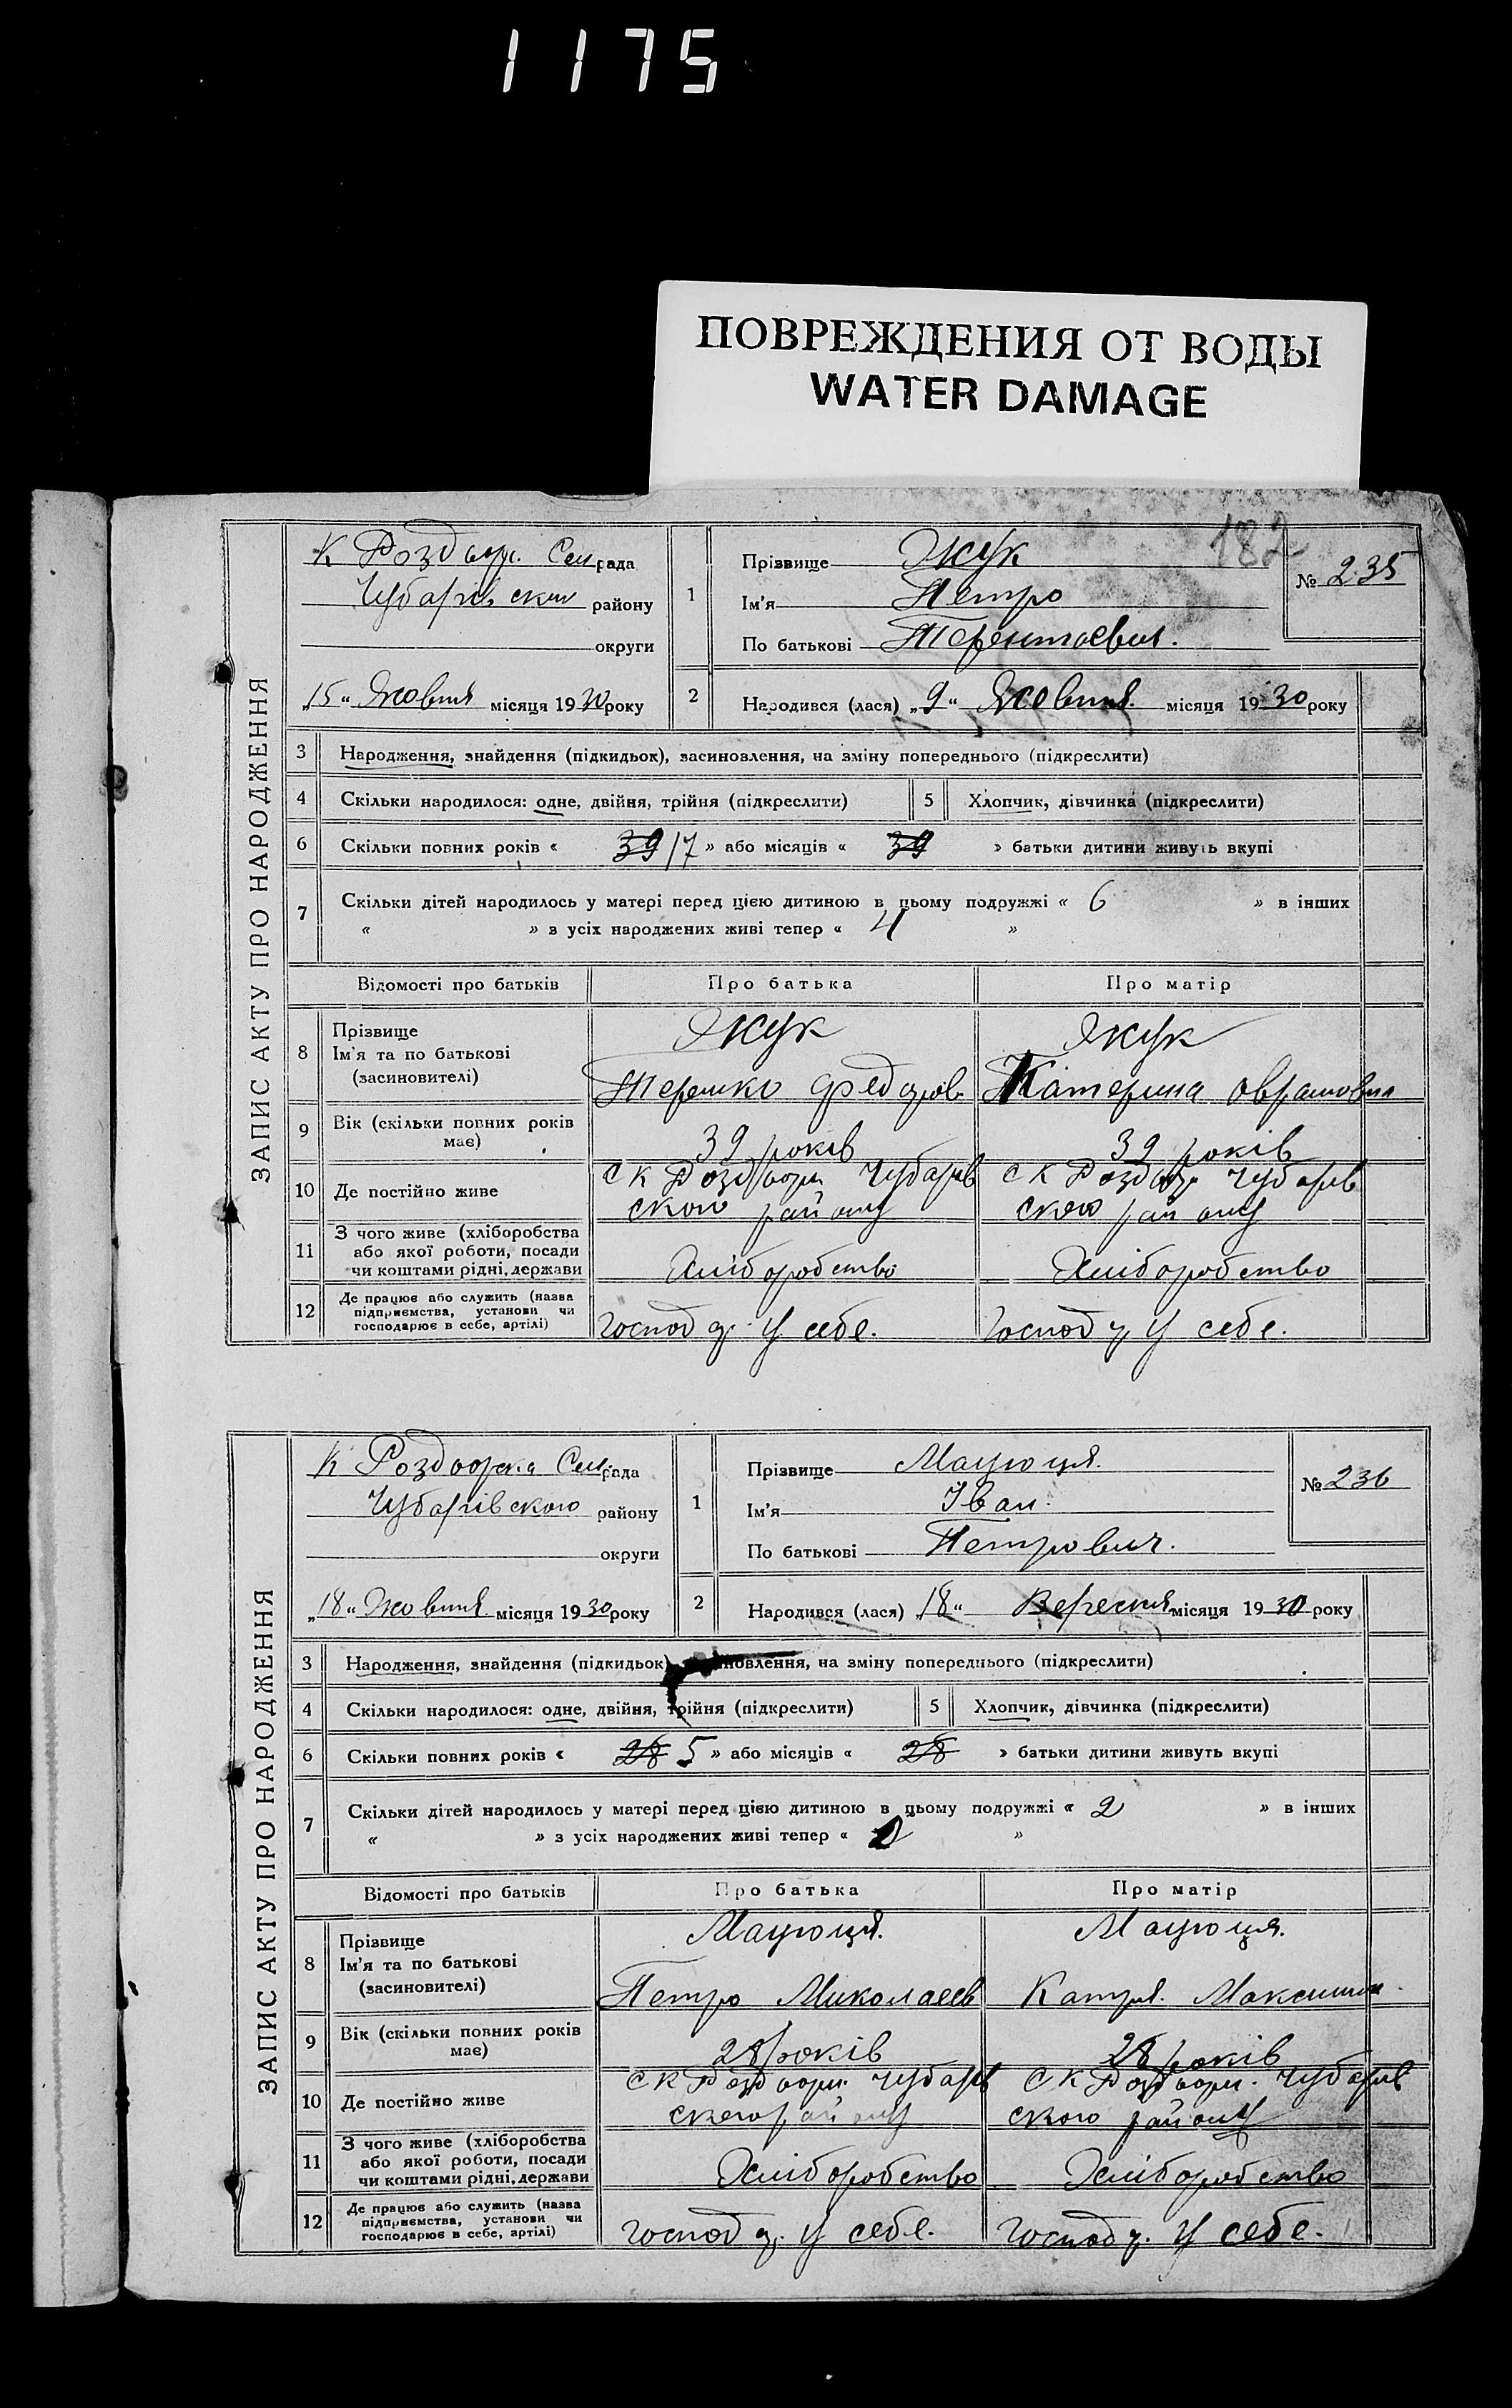 1175
ПОВРЕЖДЕНИЯ ОТ ВОДЫ
WATER DAMAGE
182
ЗАПИС АКТУ ПРО НАРОДЖЕННЯ
К Роздорр. Сіль рада
Чубарівськ району
округи
„15“ Жовтня місяця 1930 року
1 Прізвище Жук
Ім'я Петро
По батькові Терентаевич.
№ 235
2 Народився (лася) „9“ Жовтня. місяця 1930 року
3 Народження, знайдення (підкидьок), засиновлення, на зміну попереднього (підкреслити)
4 Скільки народилося: одне, двійня, трійня (підкреслити) 5 Хлопчик, дівчинка (підкреслити)
6 Скільки повних років « 39 17 » або місяців « 39 » батьки дитини живуть вкупі
7 Скільки дітей народилось у матері перед цією дитиною в цьому подружжі « 6 » в інших
« » з усіх народжених живі тепер « 4 »
Відомості про батьків Про батька Про матір
8 Прізвище Ім'я та по батькові (засиновителі)
Жук Жук
Терешко Федоров. Катерина Аврамовна
9 Вік (скільки повних років має) 39 років 39 років
10 Де постійно живе
с К Роздорр Чубарів с К Роздорр Чубарів
ского району ского району
11 З чого живе (хліборобства або якої роботи, посади чи коштами рідні, держави
Хліборобство Хліборобство
12 Де працює або служить (назва підприємства, установи чи господарює в себе, артілі)
Господ. у себе. Господ. у себе.
ЗАПИС АКТУ ПРО НАРОДЖЕННЯ
Сіль рада
Чубарівского району
округи
„18“ Жовтня місяця 1930 року
1 Прізвище
Ім'я Іван.
По батькові Петрович.
№ 236
2 Народився (лася) „18“ Вересня місяця 1930 року
3 Народження, знайдення (підкидьок) новлення, на зміну попереднього (підкреслити)
4 Скільки народилося: одне, двійня, трійня (підкреслити) 5 Хлопчик, дівчинка (підкреслити)
6 Скільки повних років « 28 5 » або місяців « 28 » батьки дитини живуть вкупі
7 Скільки дітей народилось у матері перед цією дитиною в цьому подружжі « 2 » в інших
« » з усіх народжених живі тепер « »
Відомості про батьків Про батька Про матір
8 Прізвище Ім'я та по батькові (засиновителі)
Петро Миколаєв Катря. Максимів
9 Вік (скільки повних років має) 28 років 28 років
10 Де постійно живе
с К Роздорр. Чубарів с К Роздорр. Чубарів
ского району ского району
11 З чого живе (хліборобства або якої роботи, посади чи коштами рідні, держави
Хліборобство Хліборобство
12 Де працює або служить (назва підприємства, установи чи господарює в себе, артілі)
Господ. у себе. Господ. у себе.